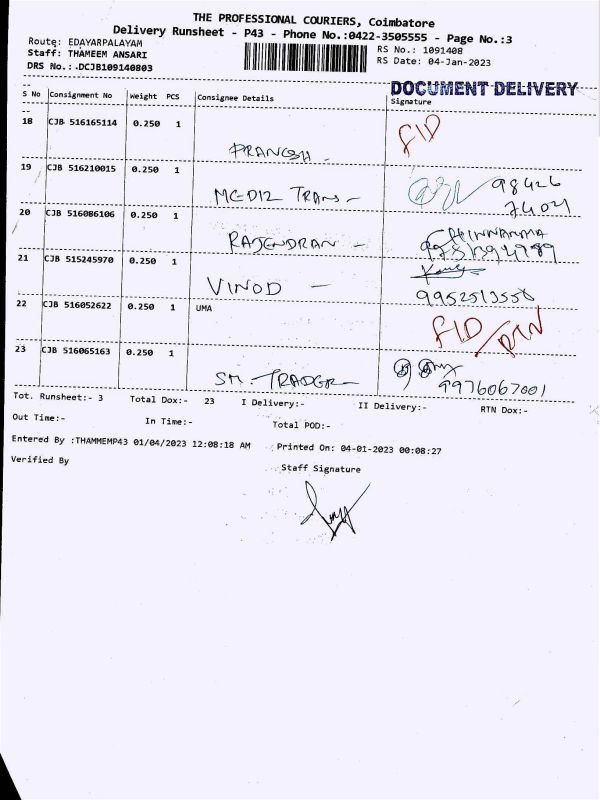 THE PROFESSIONAL COURIERS, Coimbatore
Delivery Runsheet - P43 - Phone No.:0422-3505555 - Page No.:3
Route: EDAYARPALAYAM
RS No.: 1091408
Staff: THAMEEM ANSARI
RS Date: 04-Jan-2023
DRS No.:.DCJB109140803
DOCUMENT DELIVERY
S No Consignment No Weight PCS Consignee Details Signature
18 CJB 516165114 0.250 1 FID
PRANESH -
19 CJB 516210015 0.250 1 98426
MEDIZ TRANS - 74024
20 CJB 516086106 0.250 1 CHINNAMMA
RAJENDRAN -
21 CJB 515245970 0.250 1
VINOD - 9952513556
22 CJB 516052622 0.250 1 UMA FID/RTN
23 CJB 516065163 0.250 1
SM. TRADER - 9976067001
Tot. Runsheet:- 3 Total Dox:- 23 I Delivery:- II Delivery:- RTN Dox:-
Out Time:- In Time:- Total POD:-
Entered By :THAMMEMP43 01/04/2023 12:08:18 AM Printed On: 04-01-2023 00:08:27
Verified By Staff Signature